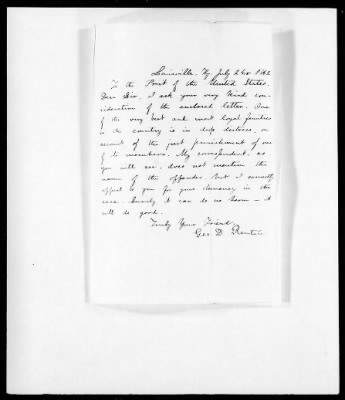 Louisville, Ky July 24, 1862
To the Prest of the United States.
Dear Sir, I ask your very kind con-
sideration of the enclosed letter. One
of the very best and most loyal families
in the country is in deep distress, on
account of the just punishment of one
of its members. My correspondent, as
you will see, does not mention the
name of the offender. But I earnestly
appeal to you for your clemency in this
case. Surely it can do no harm — it
will do good.
Truly Your Friend,
Geo. D. Prentice